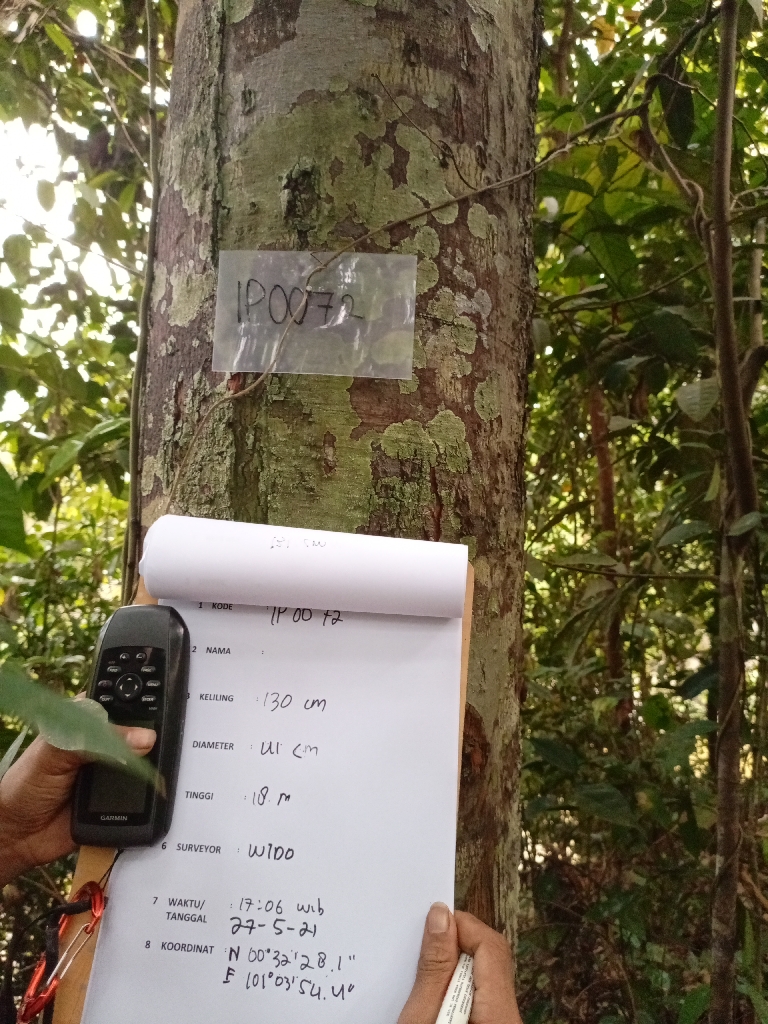 IP0072
1 KODE IP 0072
2 NAMA :
KELILING : 130 cm
DIAMETER : 41 cm
TINGGI : 18 m
6 SURVEYOR : WIDO
7 WAKTU/ TANGGAL : 17:06 wib
27-5-21
8 KOORDINAT : N 00°32'28.1"
E 101°03'54.4"
GARMIN